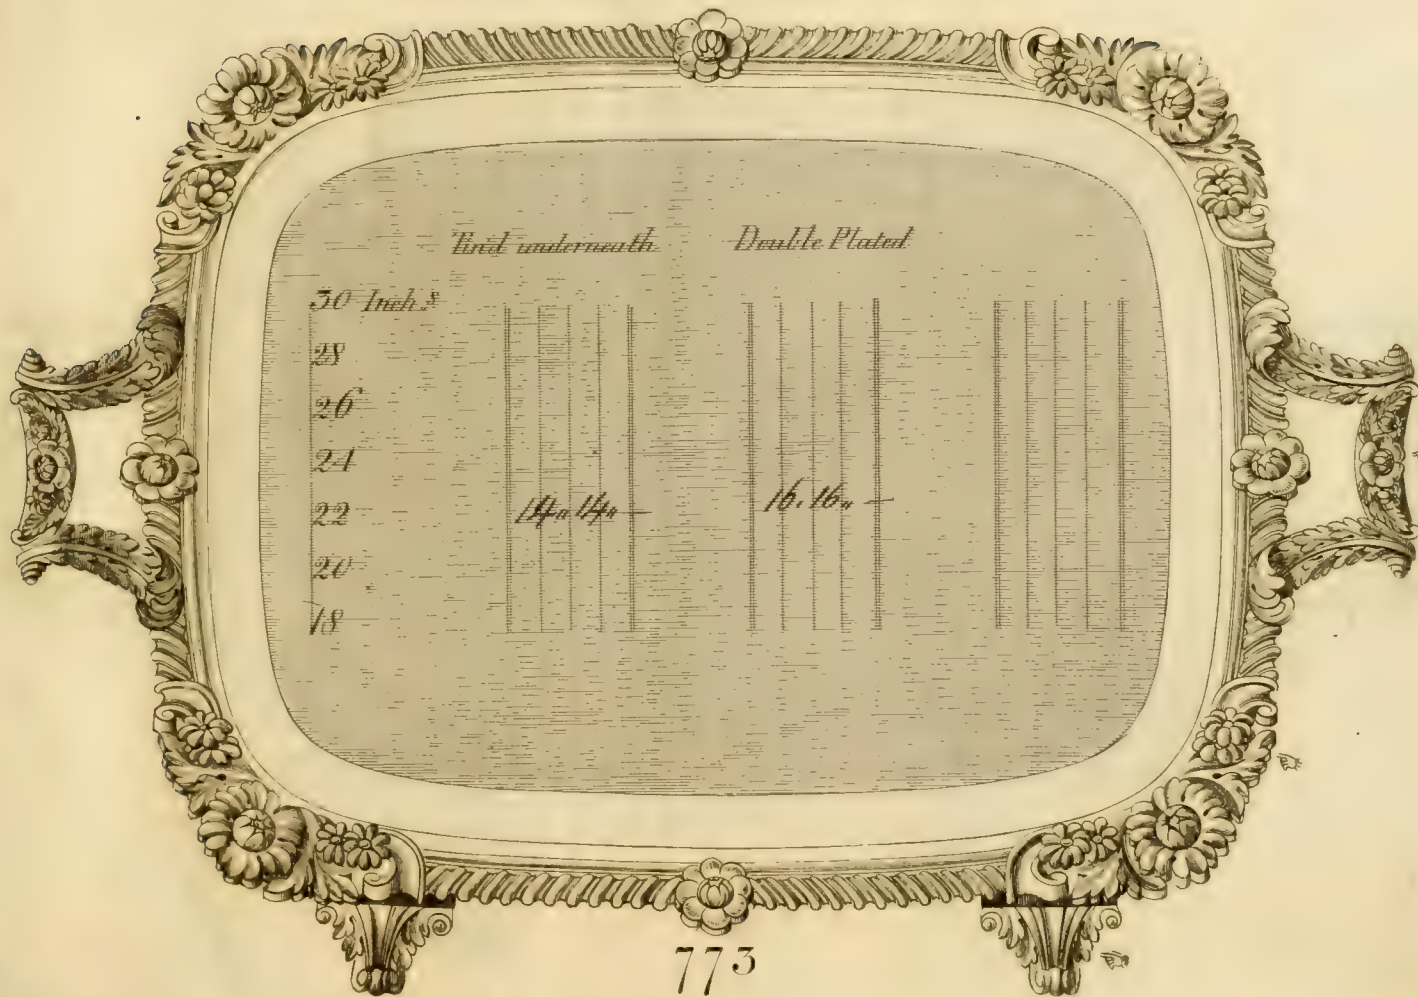 Tin'd underneath Double Plated
30 Inch.s
28
26
24
22 14„ 14„ — 16. 16„ —
20
18
773